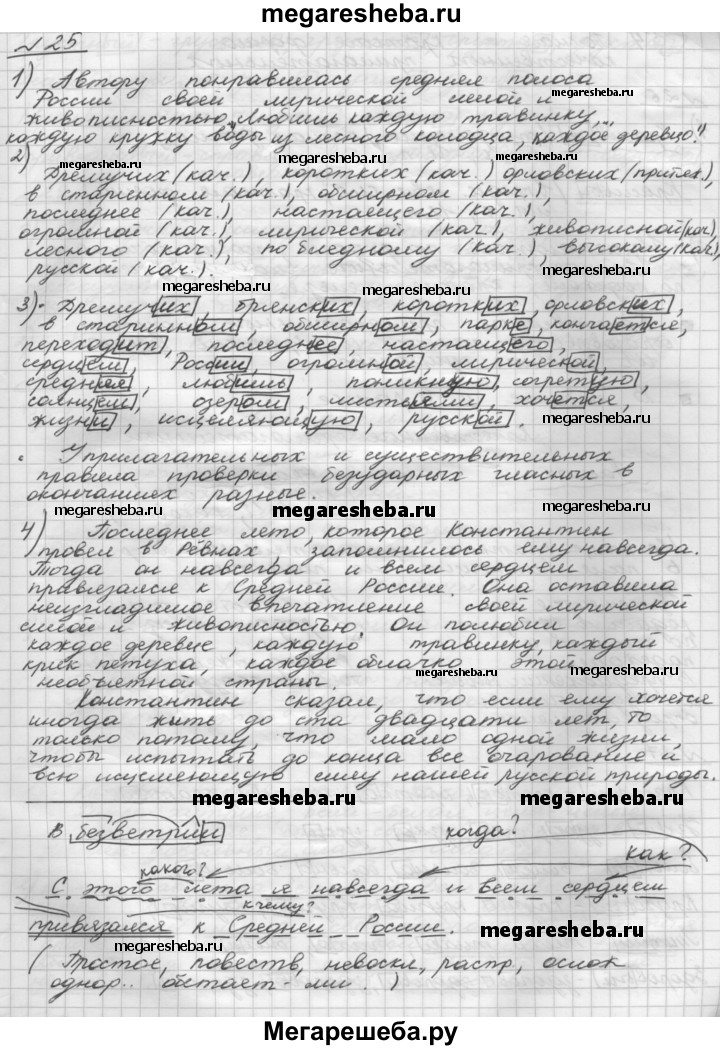 megaresheba.ru
№25
1) Автору понравилась средняя полоса
России своей лирической силой и
megaresheba.ru megaresheba.ru
живописностью. „Любишь каждую травинку,...
каждую кружку воды из лесного колодца, каждое деревцо".
2) megaresheba.ru
Дремучих (кач.), коротких (кач.) орловских (притяж.),
в старинном (кач.), обширном (кач.),
последнее (кач.), настоящего (кач.),
огромной (кач.), лирической (кач.), живописной (кач.)
лесного (кач.), по бледному (кач.), высокому (кач.),
русской (кач.).
megaresheba.ru
3) • Дремучих, брянских, коротких, орловских,
в старинном, обширном, парке, кончается,
переходит, последнее, настоящего,
megaresheba.ru
сердцем, России, огромной, лирической,
средняя, любишь, поникшую, согретую,
солнцем, озером, листьями, хочется,
megaresheba.ru
жизни, исцеляющую, русской.
• У прилагательных и существительных
правила проверки безударных гласных в
окончаниях разные.
megaresheba.ru megaresheba.ru megaresheba.ru
4) Последнее лето, которое Константин
провел в Рёвнах, запомнилось ему навсегда.
Тогда он навсегда и всем сердцем
привязался к Средней России. Она оставила
неизгладимое впечатление своей лирической
силой и живописностью. Он полюбил
megaresheba.ru
каждое деревце, каждую травинку, каждый
крик петуха, каждое облачко этой
megaresheba.ru megaresheba.ru
необъятной страны.
Константин сказал, что если ему хочется
иногда жить до ста двадцати лет, то
только потому, что мало одной жизни,
чтобы испытать до конца все очарование и
всю исцеляющую силу нашей русской природы.
megaresheba.ru megaresheba.ru
В безветрии
когда?
как?
какого?
С этого лета я навсегда и всем сердцем
к чему?
привязался к Средней России.
megaresheba.ru megaresheba.ru
(Простое, повеств, невоскл, распр, ослож
однор.. обстоят-ми.)
Мегарешеба.ру